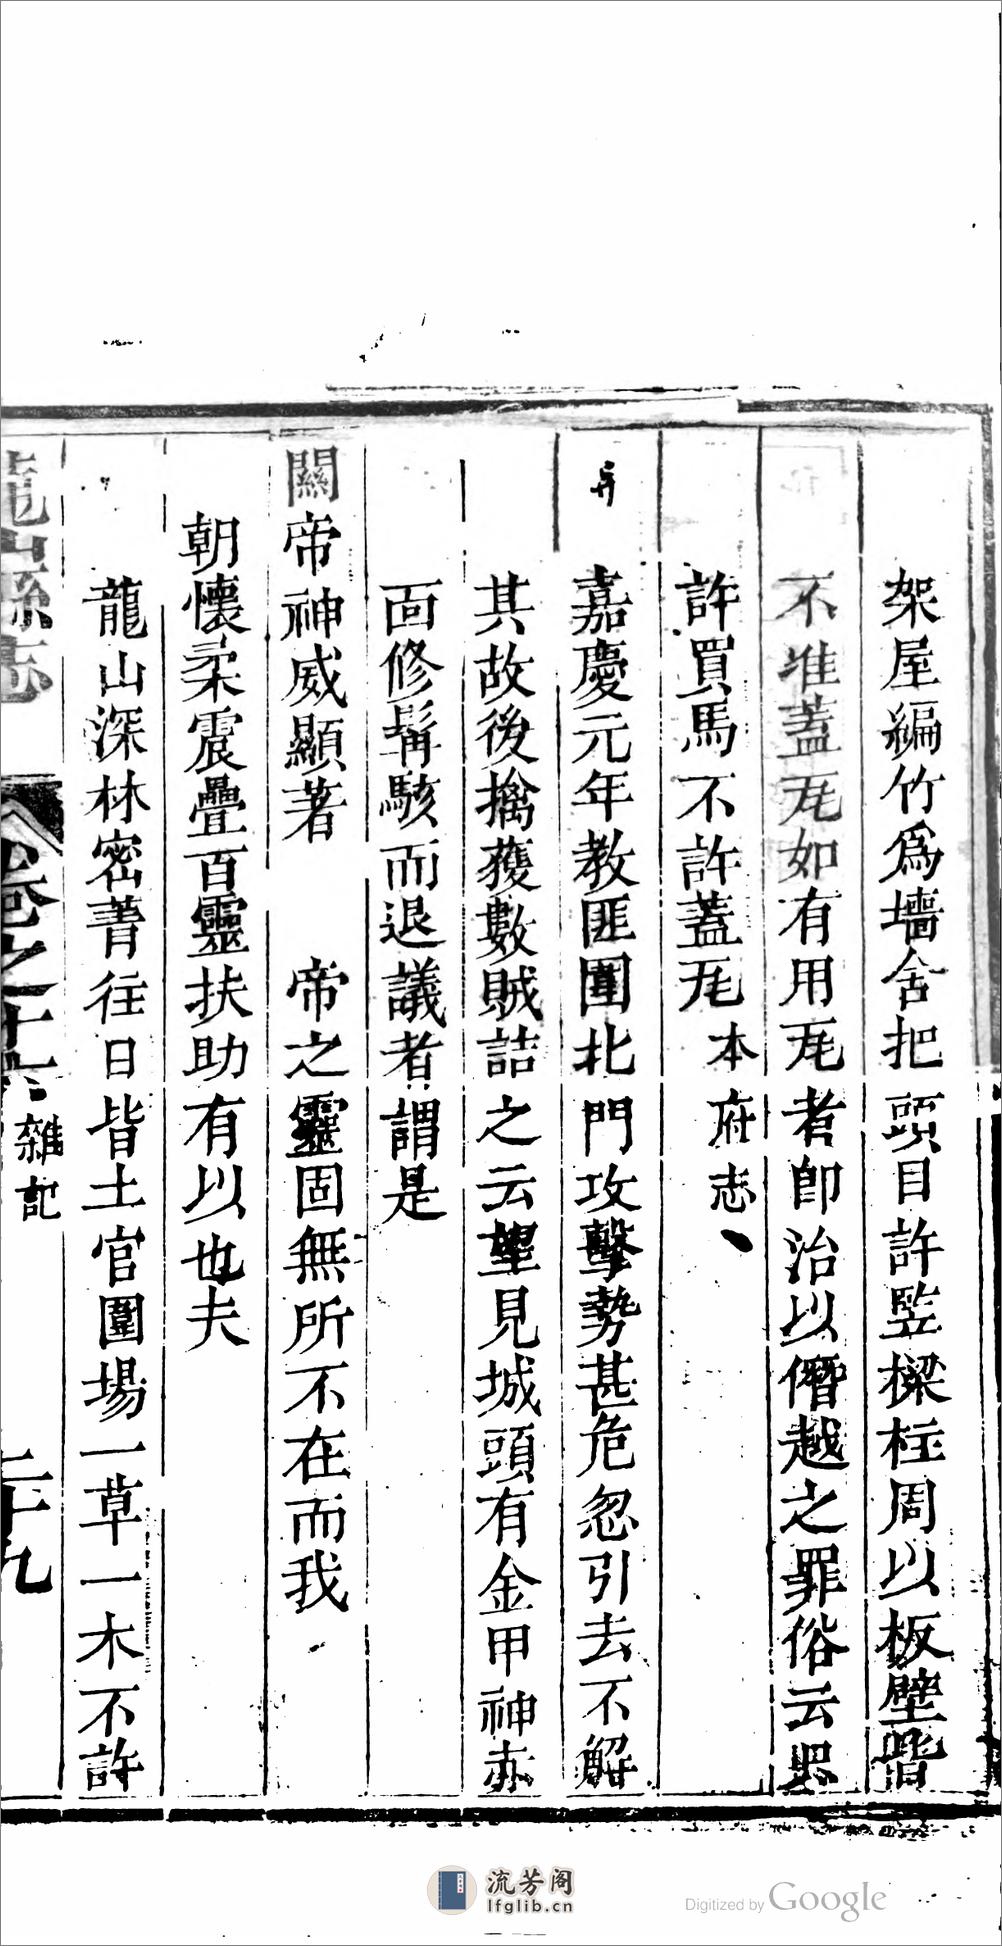 架屋編竹爲墻舍把頭目許竪樑柱周以板壁皆
不准蓋瓦如有用瓦者卽治以僭越之罪俗云只
許買馬不許蓋瓦 本府志
嘉慶元年教匪圍北門攻擊勢甚危忽引去不解
其故後擒獲數賊詰之云望見城頭有金甲神赤
面修髯駭而退議者謂是
關帝神威顯著 帝之靈固無所不在而我
朝懷柔震疊百靈扶助有以也夫
龍山深林密菁往日皆土官圍場一草一木不許
龍山縣志 卷之十六 雜記 二十九
流芳阁
lfglib.cn
Digitized by Google